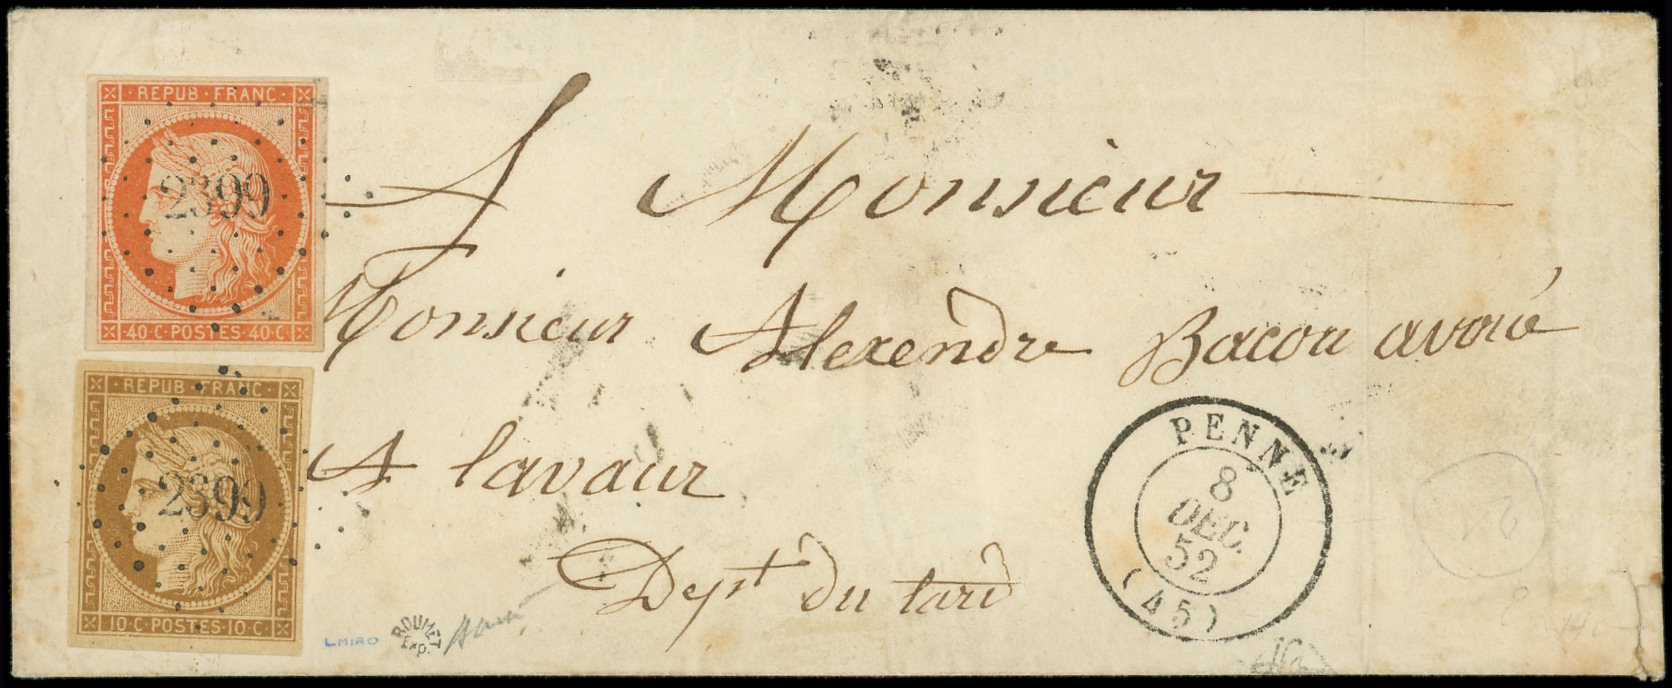 REPUB·FRANC·
2399
40·C·POSTES·40·C
REPUB·FRANC·
2399
10·C·POSTES·10·C
A Monsieur
Monsieur Alexendre Bacou avoué
A lavaur
Dept du tard
PENNE
8
DEC.
52
(45)
LMIRO
ROUMET
Exp.